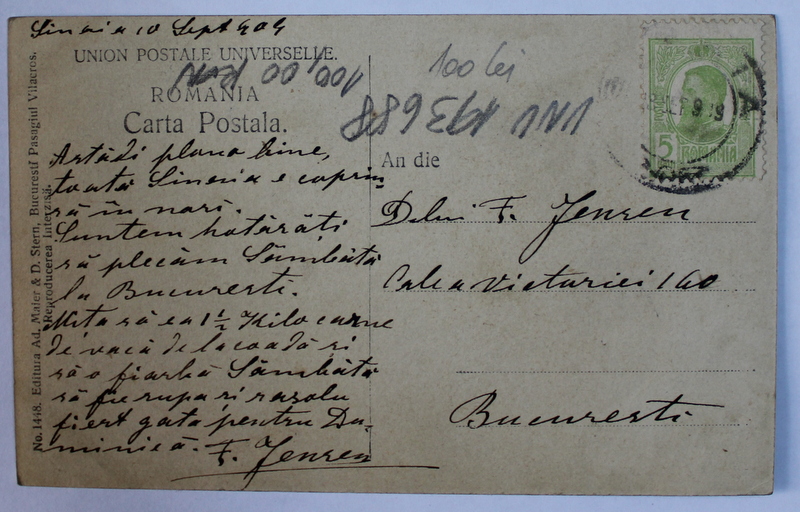 Sinaia 10 Sept 909
UNION POSTALE UNIVERSELLE.
100,00 RON
ROMANIA
Carta Postala.
100 lei
VNV 193688
An die
5
ROMANIA
Astădi plouo bine,
toată Sinaia e coprin
să în nori.
Suntem hotărâți
să plecăm Sâmbătă
la Bucuresti.
Mița să ea 1 1/2 Kilo carne
de vacă de la coadă si
să o fiarbă Sâmbăta
să fie supa si rasolu
fiert gata pentru Du-
minică. F. Jensen
D-lui F. Jensen
Calea Victoriei 160
Bucuresti
No. 1448. Editura Ad. Maier & D. Stern, Bucuresti Pasagiul Vilacros.
Reproducerea Interzisă.